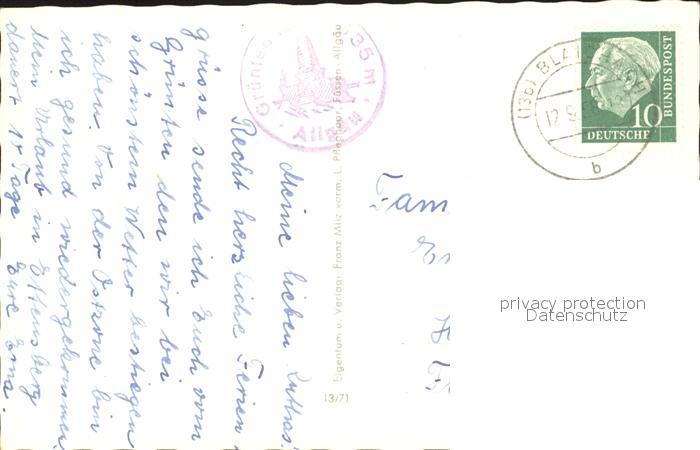 Meine lieben
Recht herzliche Ferien
grüsse sende ich Euch vom
Grünten den wir bei
schönstem Wetter bestiegen
haben. Von der Ostzone bin
ich gesund wiedergekommen
Mein Urlaub in Ettensberg
dauert 14 Tage
Eure Erna.
Grünten 35m
Allgäu
Eigentum u. Verlag: Franz Milz vorm. L. Füssen Allgäu
13/71
(13b) BLAI
12.9
b
10
DEUTSCHE
BUNDESPOST
Fam
privacy protection
Datenschutz